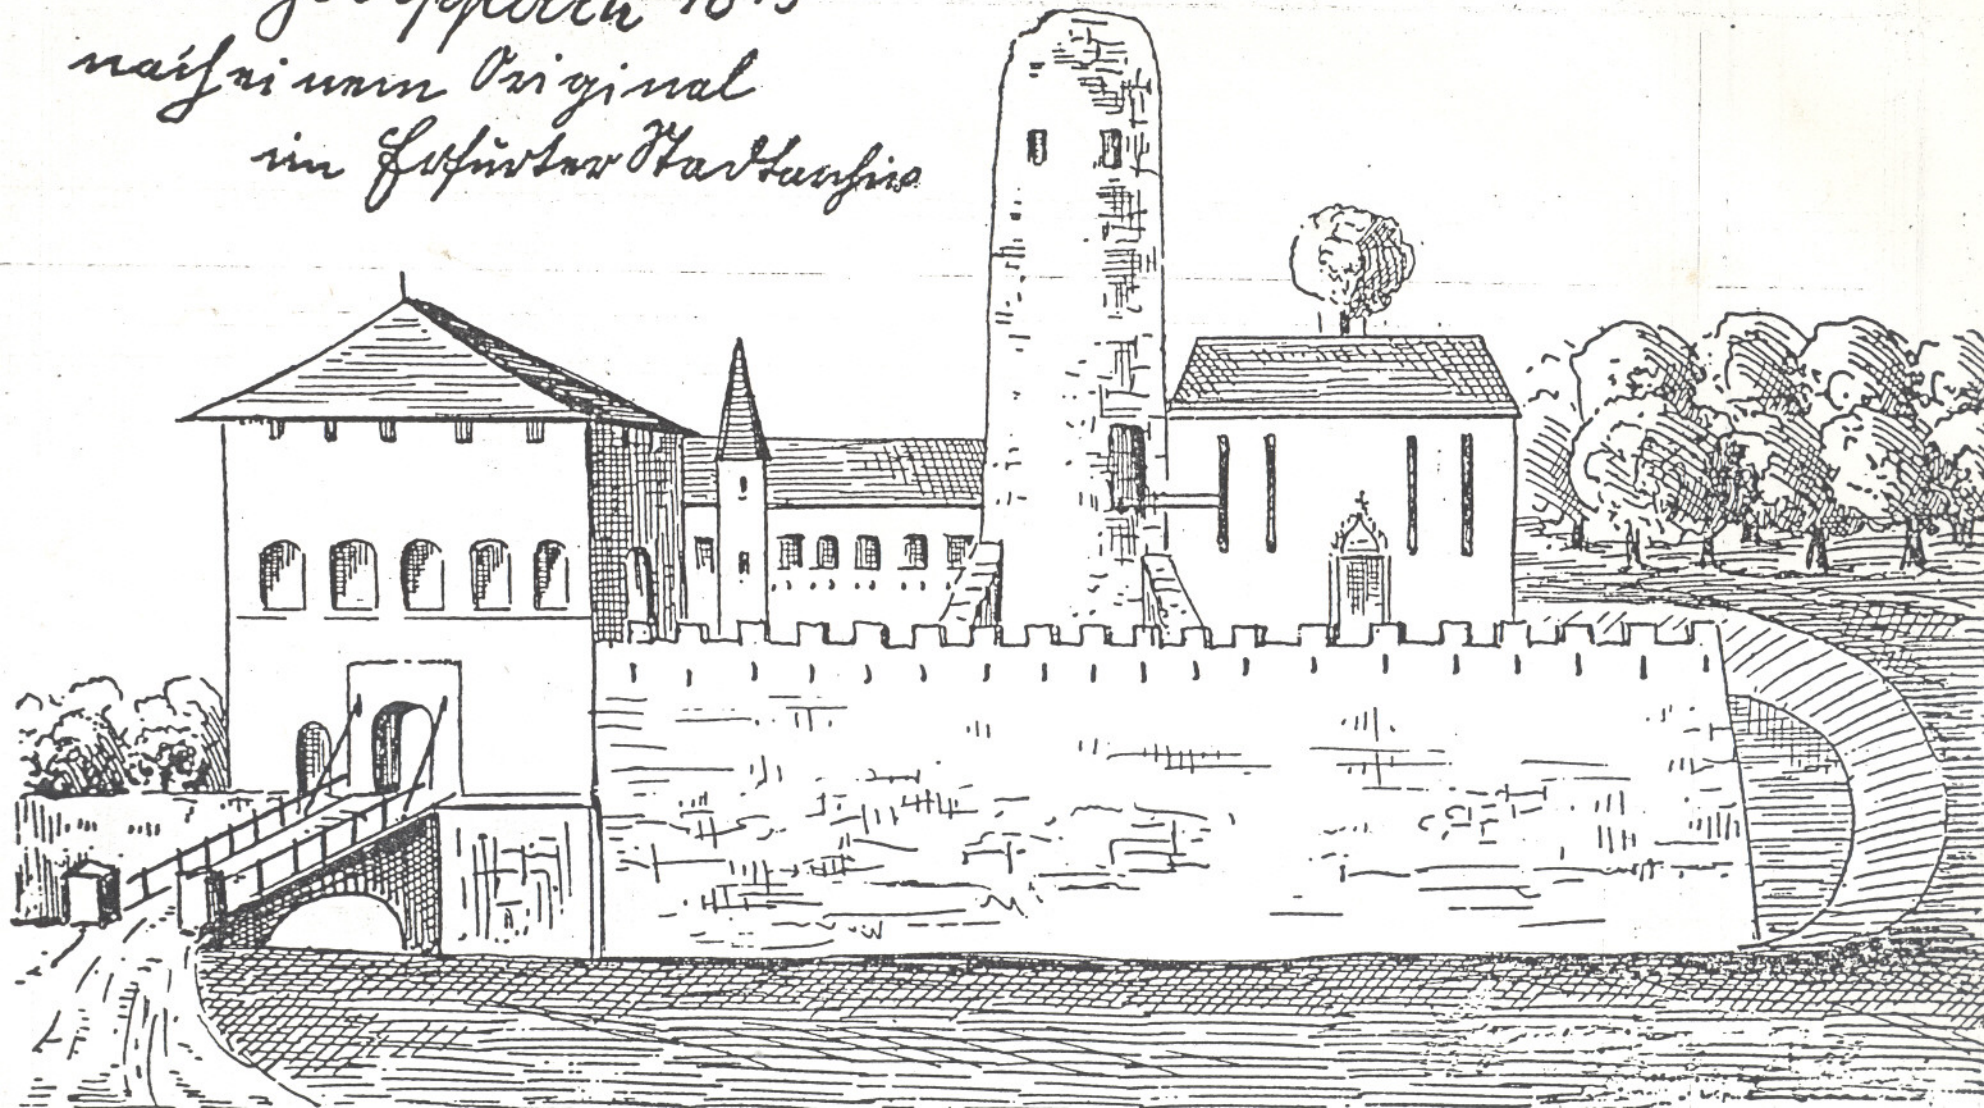 nach einem Original
im Erfurter Stadtarchiv